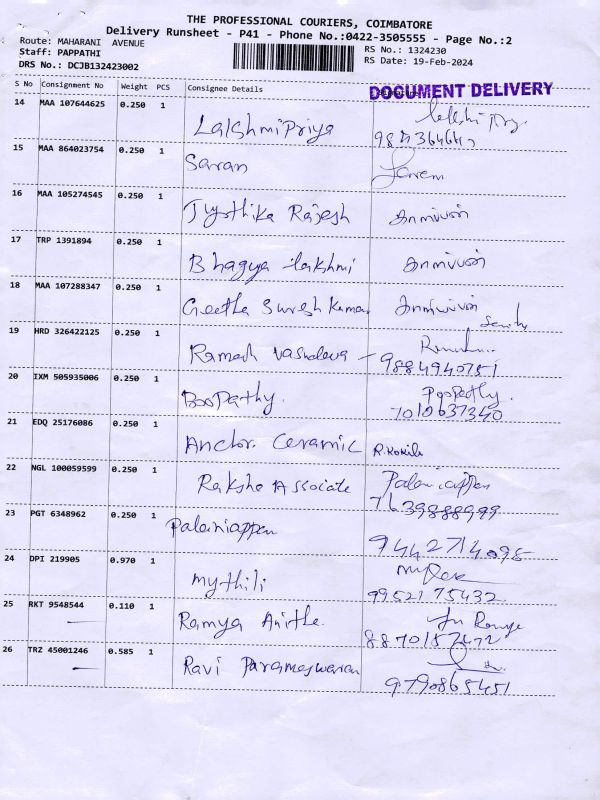 THE PROFESSIONAL COURIERS, COIMBATORE
Delivery Runsheet - P41 - Phone No.:0422-3505555 - Page No.:2
Route: MAHARANI AVENUE
Staff: PAPPATHI
DRS No.: DCJB132423002
RS No.: 1324230
RS Date: 19-Feb-2024
DOCUMENT DELIVERY
S No Consignment No Weight PCS Consignee Details
14 MAA 107644625 0.250 1 Lakshmi Priya
15 MAA 864023754 0.250 1 Saran
16 MAA 105274545 0.250 1 Jyothika Rajesh
17 TRP 1391894 0.250 1 Bhagya lakshmi
18 MAA 107288347 0.250 1 Geetha Suresh Kumar
19 HRD 326422125 0.250 1 Ramesh Vasudeva - 9884940751
20 IXM 505935006 0.250 1 Boopathy. Poopathy.
7010637340
21 EDQ 25176086 0.250 1 Anchor Ceramic R. Kokila
22 NGL 100059599 0.250 1 Raksha Associate Palaniappan
7639888999
23 PGT 6348962 0.250 1 Palaniappan 9442714098
24 DPI 219905 0.970 1 mythili
9952175432
25 RKT 9548544 0.110 1 Ramya Anitha
8870157272
26 TRZ 45001246 0.585 1 Ravi Parameswaran
9790865451